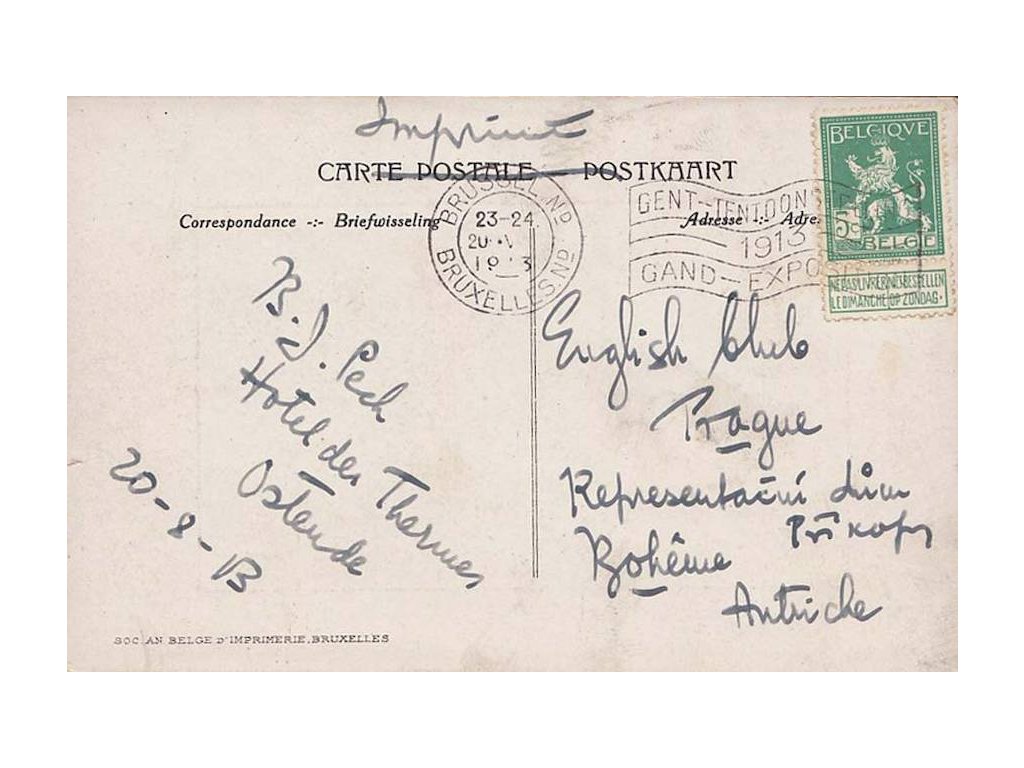 Imprimé
CARTE POSTALE — POSTKAART
Correspondance -:- Briefwisseling
Adresse -:- Adre
BRUSSEL Nᴅ
23-24
1913
BRUXELLES. Nᴅ
GENT-TENTOONS
1913
GAND-EXPOSI
BELGIQUE
5c
BELGIE
NE PAS LIVRER NIET BESTELLEN
LE DIMANCHE OP ZONDAG.
B. J. Pech
Hotel des Thermes
Ostende
20-8-13
English Club
Prague
Representační dům
Příkopy
Bohême
Autriche
SOC. AN BELGE D'IMPRIMERIE, BRUXELLES